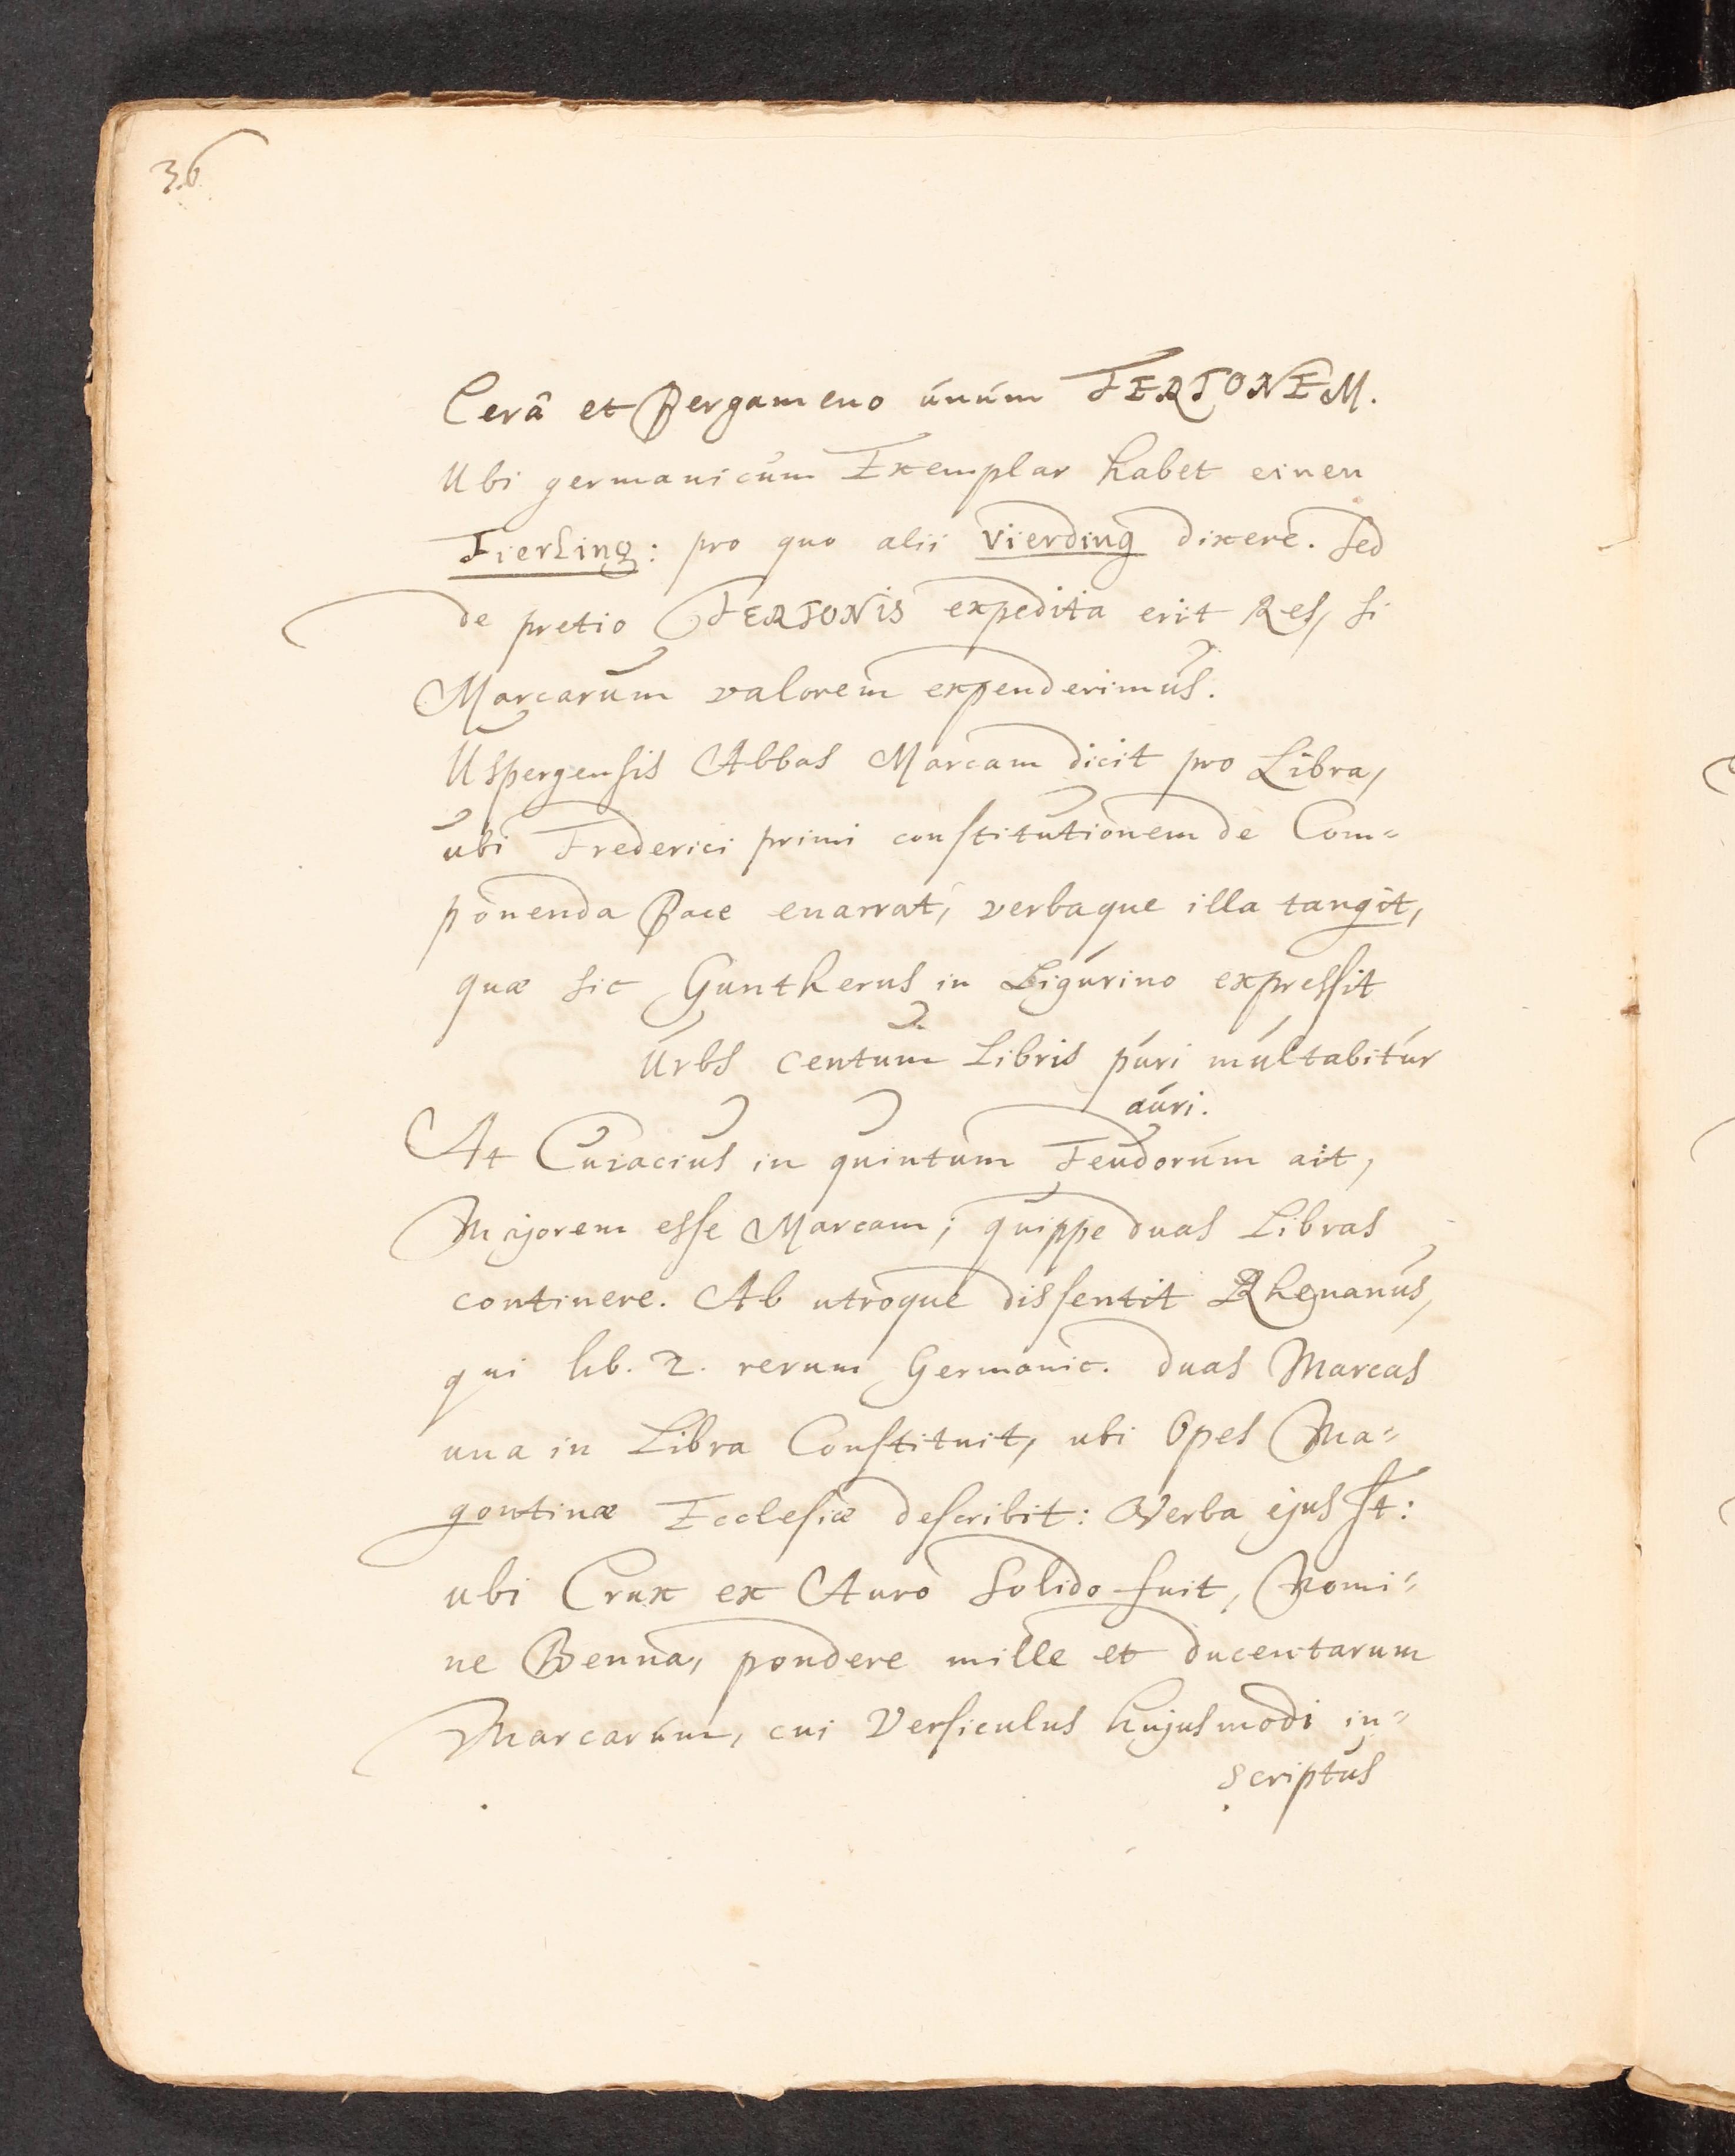 36
Cerâ et Pergameno unum FERTONEM.
Ubi germanicum Exemplar habet einen
Fierling: pro quo alii Vierding dixere. Sed
de pretio FERTONIS expedita erit Res, si
Marcarum valorem expenderimus.
Uspergensis Abbas Marcam dicit pro Libra,
ubi Frederici primi constitutionem de Com-
ponenda Pace enarrat, verbaque illa tangit,
quæ sic Guntherus in Ligurino expressit
Urbs centum Libris puri multabitur
auri.
At Cuiacius in quintum Feudorum ait,
Majorem esse Marcam; quippe duas Libras
continere. Ab utroque dissentit Rhenanus,
qui lib. 2. rerum Germanic. duas Marcas
una in Libra Constituit, ubi Opes Ma-
gontinæ Ecclesiæ describit: Verba ejus st:
ubi Crux ex Auro Solido fuit, Nomi-
ne Benna, pondere mille et ducentarum
Marcarum, cui Versiculus hujusmodi in-
scriptus